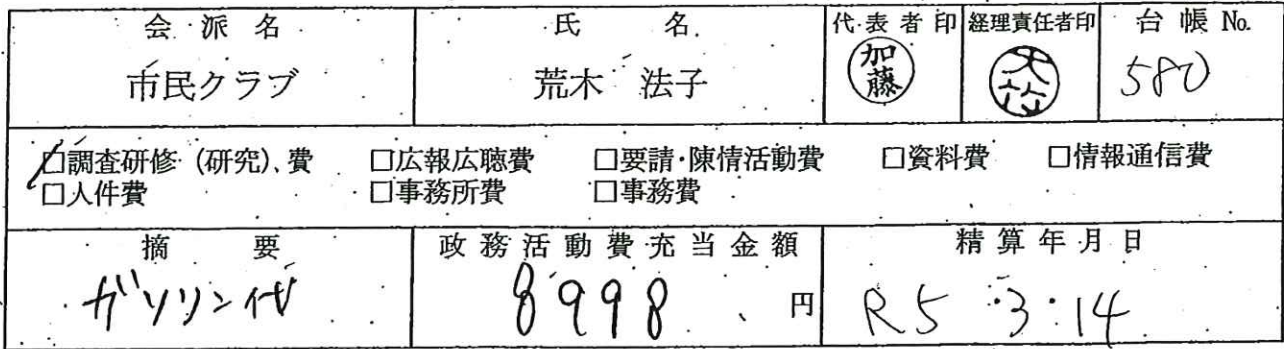 会派名 氏名 代表者印 経理責任者印 台帳No.
市民クラブ 荒木 法子 加藤 大竹 580
□調査研修（研究）費 □広報広聴費 □要請・陳情活動費 □資料費 □情報通信費
□人件費 □事務所費 □事務費
摘要 政務活動費充当金額 精算年月日
ガソリン代 8998 円 R5・3・14